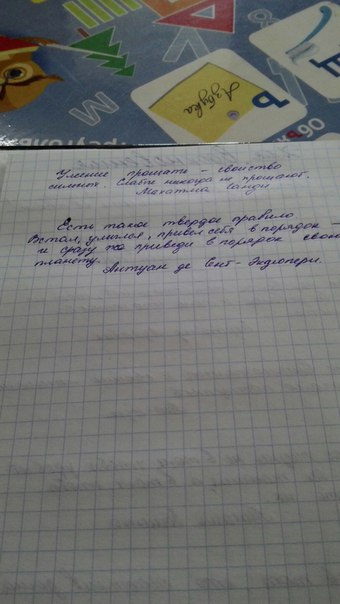 Ъ
Азбука
М
Умение прощать – свойство
сильных. Слабые никогда не прощают.
Махатма Ганди
Есть такое твердое правило
Встал, умылся, привел себя в порядок –
и сразу же приведи в порядок свою
планету.
Антуан де Сент-Экзюпери.